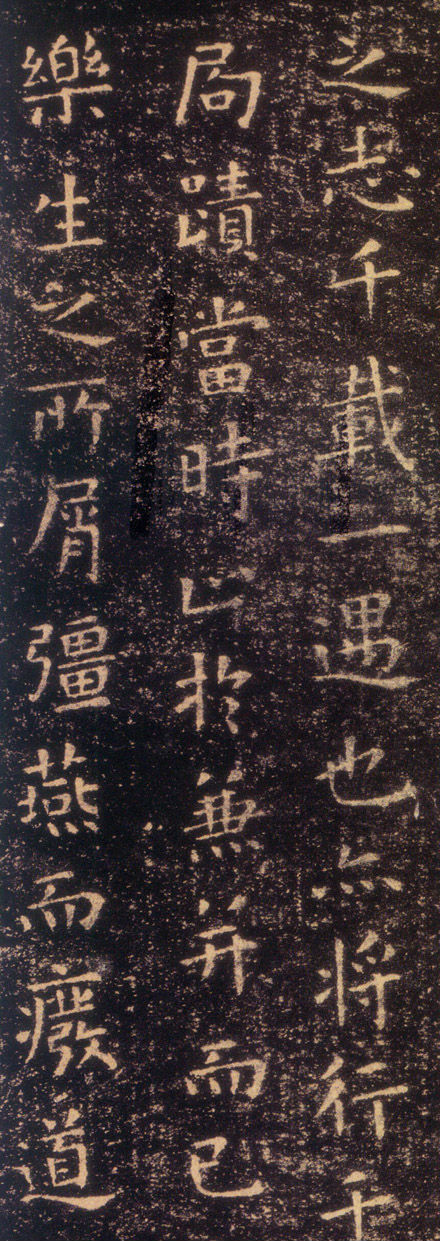 之志千載一遇也亦將行千
局蹟當時止於兼并而已
樂生之所屑彊燕而癈道